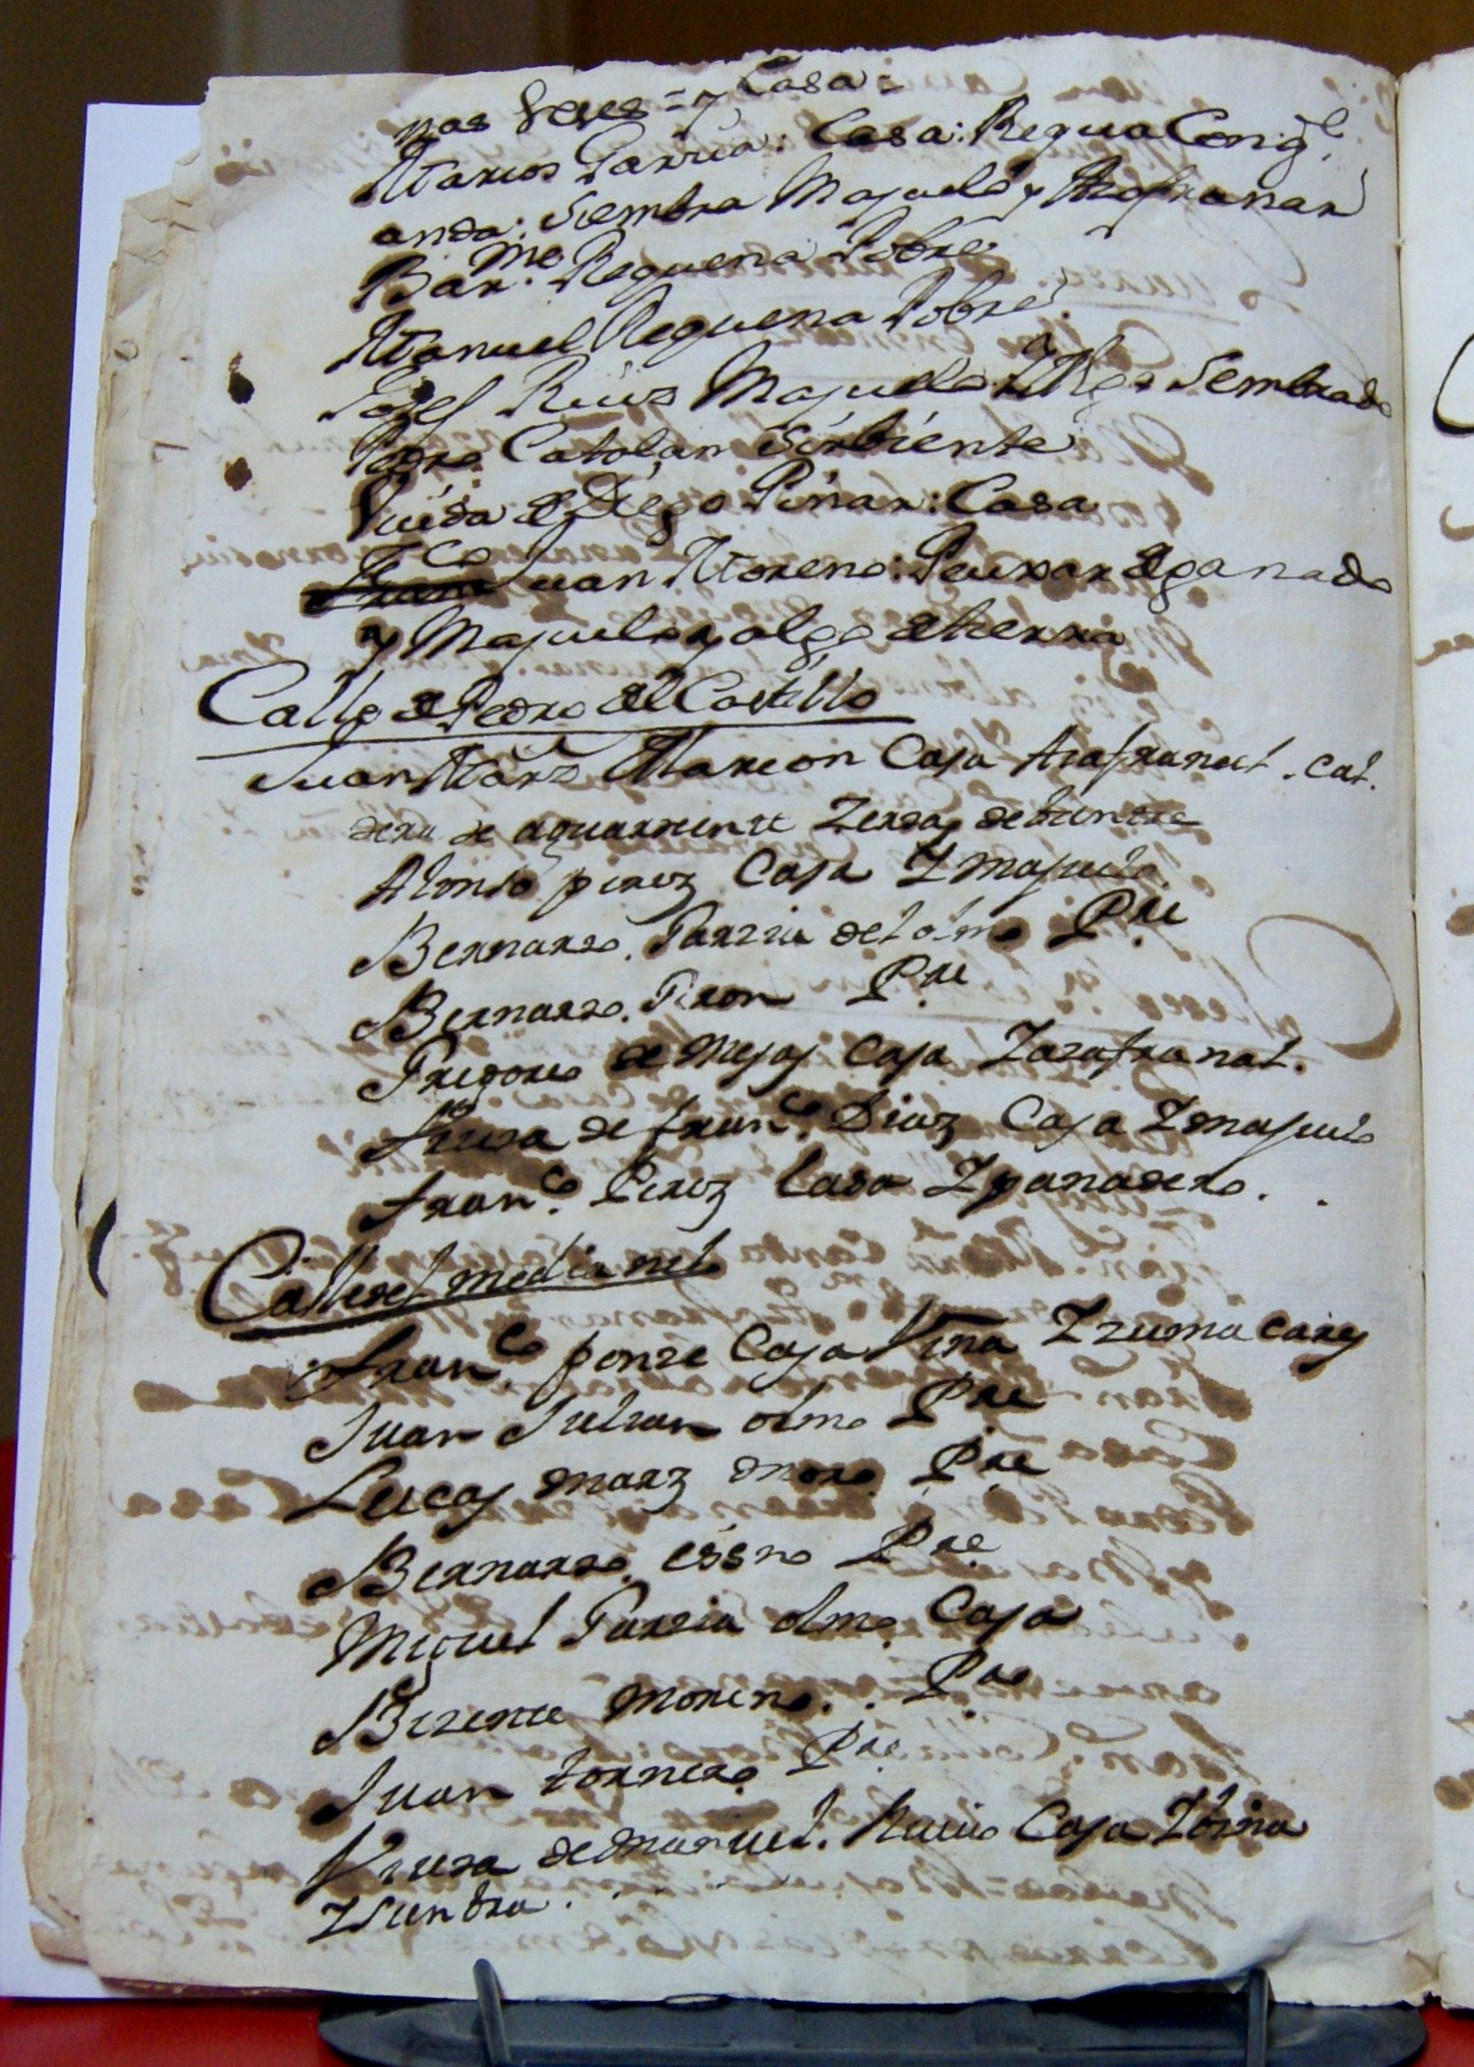 nas Reses = y Casa =
Marcos Garcia: Casa: Requa Con q.e
anda: Siembra Majuelo y Azafranar
Bar.me Requena Pobre
Manuel Requena Pobre
Josef Ruiz Majuelo Y Sembrado
Pedro Catalan Sirbiente
Viuda de Diego Piñar: Casa
Juan Moreno: Peuxar de ganado
y Majuelo y algo de tierra
Calle de Pedro del Castillo
Juan Marz Alarcon Casa Azafranal. Cal.
dera de aguardiente Zerdos de bientre
Alonso perez Casa Y majuelo
Bernardo Garzia del olmo P.re
Bernardo Giron P.re
Gregorio de Mesas Casa Y azafranal.
Viuda de Fran.co Diaz Casa Y majuelo
Fran.co Perez Casa Y panadero.
Calle del medianil
Fran.co ponze Casa Viña Y zumacares
Juan Julian olmo P.re
Lucas marz moro P.re
Bernardo essno P.re
Miguel Garzia olmo Casa
Bizente moreno. P.re
Juan tornero P.re
Viuda de manuel. Casa Y biña
Y Siembra.